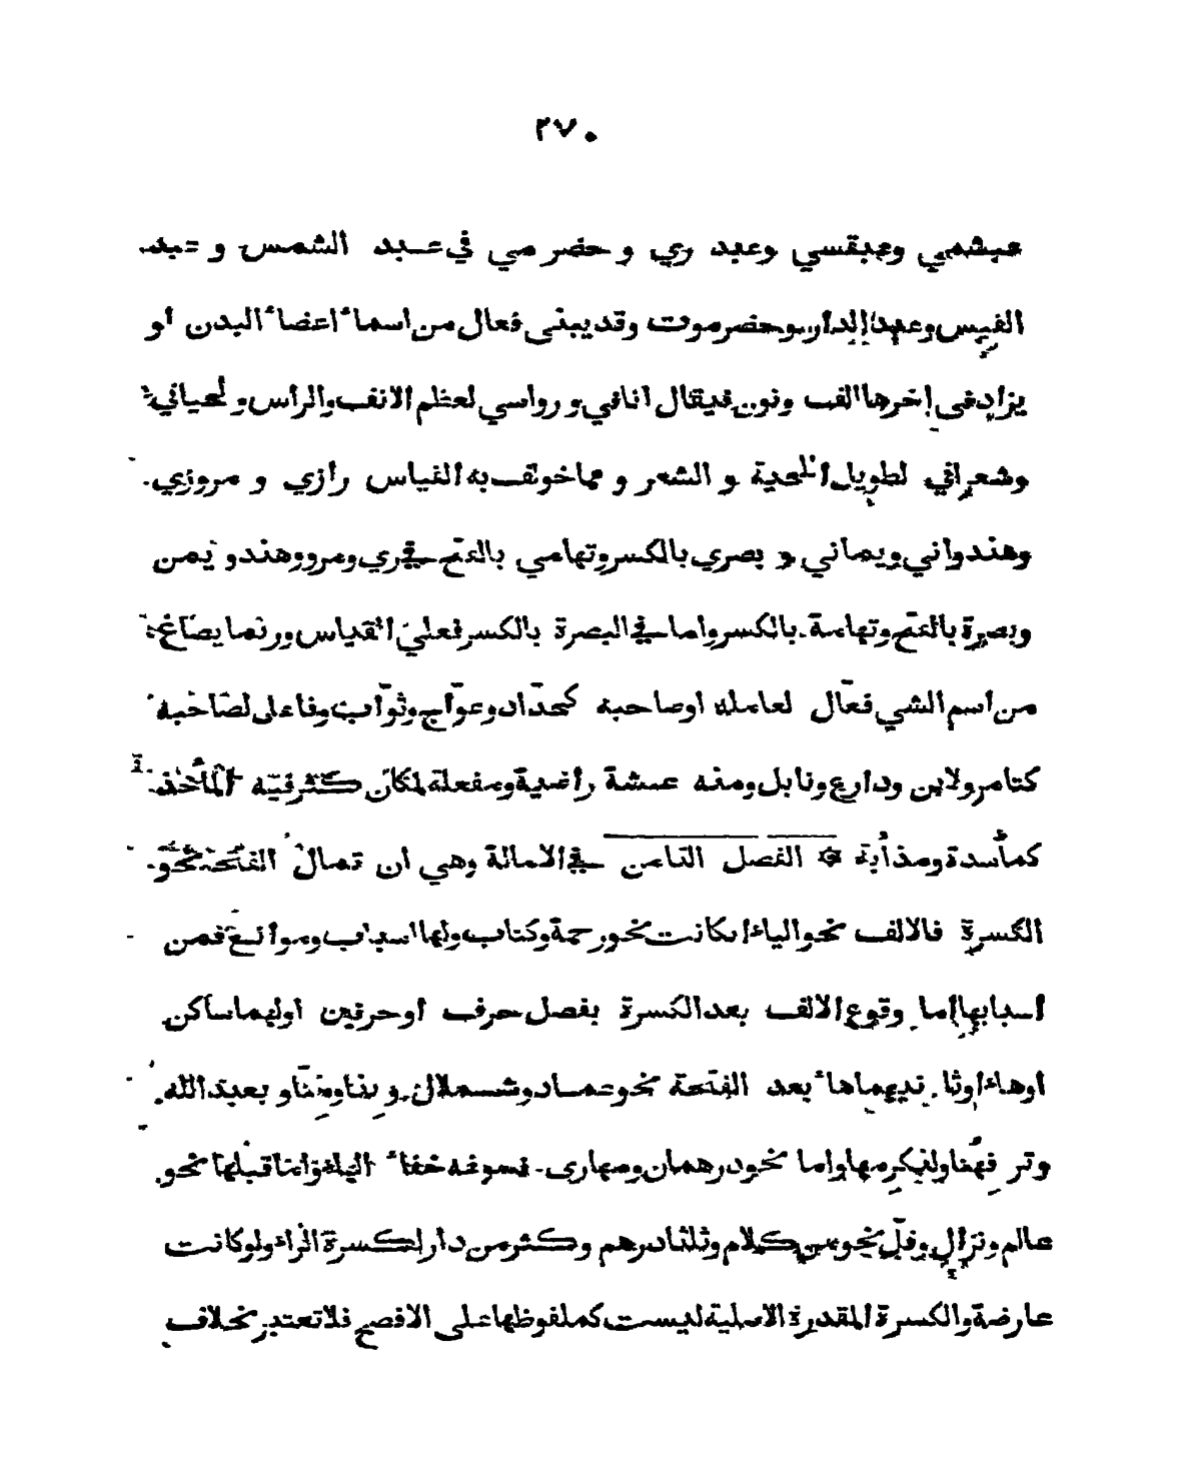 ٢٧٠
عبشمي وعبقسي وعبد ري و حضر مي في عبد الشمس و عبد
القيس وعبد الدار وحضر موت وقد يبنى فعال من اسماء اعضاء البدن او
يزاد فى اخرها الف ونون فيقال انافي و رواسي لعظم الانف والرأس و لحياني
وشعراني لطويل اللحية و الشعر و مما خولف به القياس رازي و مروزي
وهندواني ويماني و بصري بالكسر وتهامي بالفتح في ري ومرو وهند و يمن
وبصرة بالفتح وتهامة بالكسر واما في البصرة بالكسر فعلى القياس وربما يصاغ
من اسم الشي فعّال لعامله او صاحبه كحدّاد وعوّاج وثوّاب وفاعل لصاحبه
كتامر ولابن ودارع ونابل ومنه عيشة راضية ومفعلة لمكان كثر فيه المأخذ
كمأسدة ومذأبة ۞ الفصل الثامن في الامالة وهي ان تمال الفتحة نحو
الكسرة فالالف نحو الياء ان كانت نحو رحمة وكتاب ولها اسباب وموانع فمن
اسبابها اما وقوع الالف بعد الكسرة بفصل حرف او حرفين اولهما ساكن
اوهاء او ثا نيهما هاء بعد الفتحة نحو عماد وشملال و بنا ومنّا و بعبد الله
وتر فهنا ولنكرمها واما نحو درهمان ومهارى فسوغه خفاء الهاء واما قبلها نحو
عالم ونزال وقلّ نحو من كلام وثلثا درهم وكثر من دار لكسرة الراء ولو كانت
عارضة والكسرة المقدرة الاصلية ليست كملفوظها على الافصح فلا تعتبر بخلاف